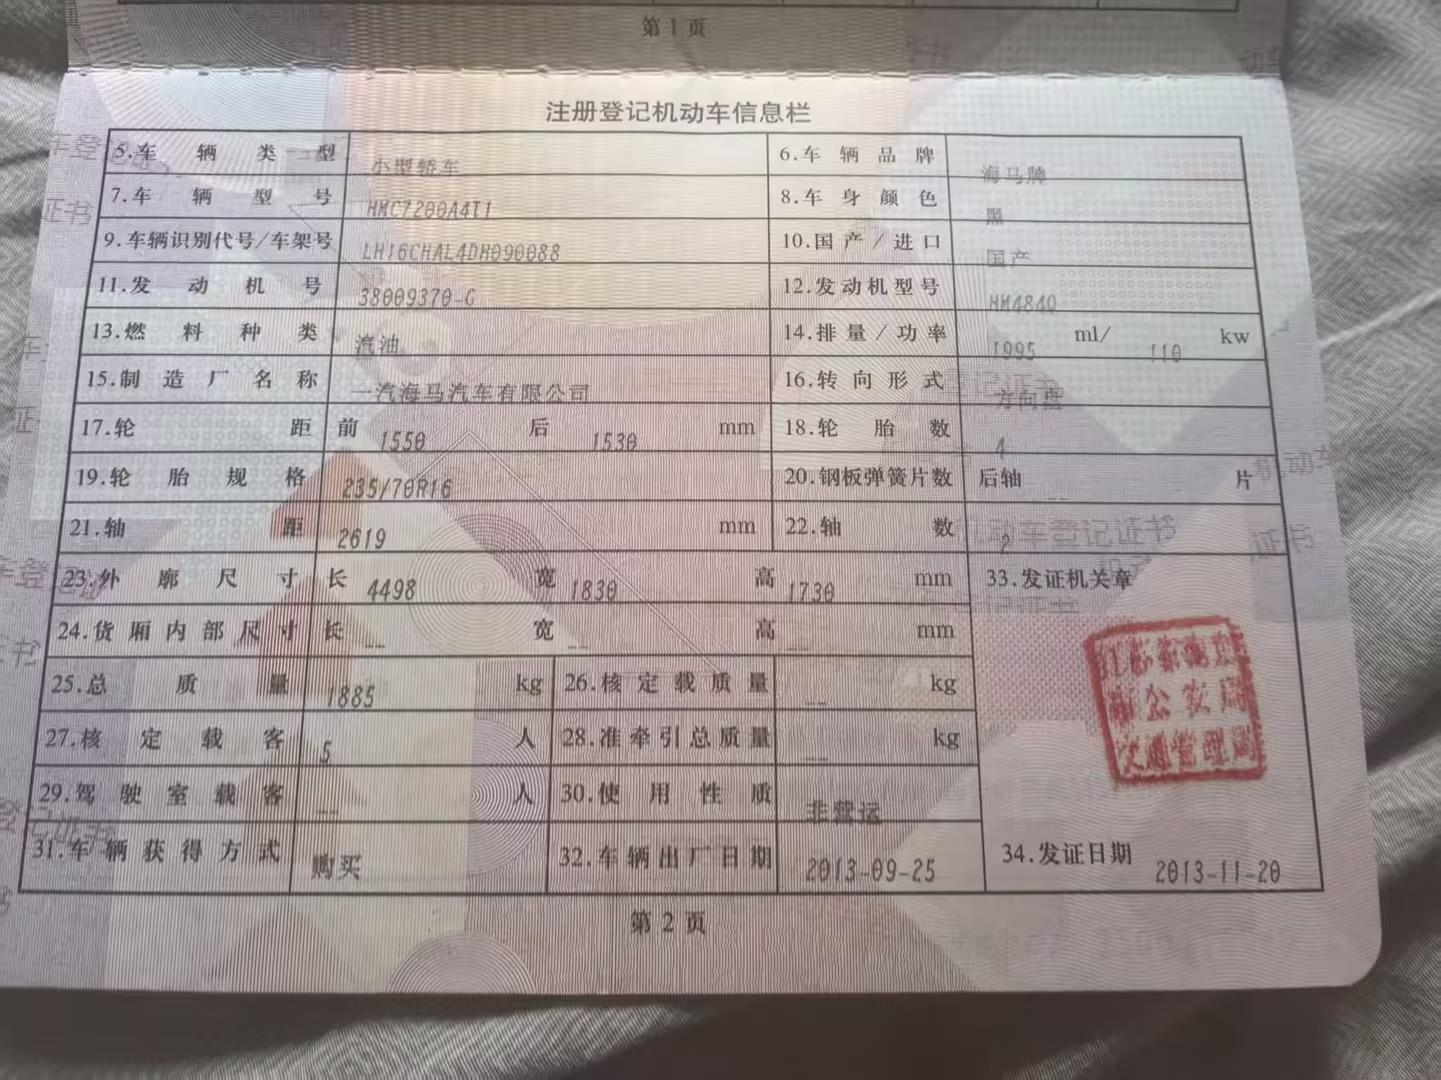 第 1 页
注册登记机动车信息栏
5.车辆类型 小型轿车 6.车辆品牌 海马牌
7.车辆型号 HMC7200A4T1 8.车身颜色 黑
9.车辆识别代号/车架号 LH16CHAL4DH090088 10.国产/进口 国产
11.发动机号 38009370-C 12.发动机型号 HM484Q
13.燃料种类 汽油 14.排量/功率 1995 ml/ 110 kw
15.制造厂名称 一汽海马汽车有限公司 16.转向形式 方向盘
17.轮距 前 1550 后 1530 mm 18.轮胎数 4
19.轮胎规格 235/70R16 20.钢板弹簧片数 后轴 -- 片
21.轴距 2619 mm 22.轴数 2
23.外廓尺寸 长 4498 宽 1830 高 1730 mm 33.发证机关章
24.货厢内部尺寸 长 -- 宽 -- 高 -- mm
25.总质量 1885 kg 26.核定载质量 -- kg
27.核定载客 5 人 28.准牵引总质量 -- kg
29.驾驶室载客 -- 人 30.使用性质 非营运
31.车辆获得方式 购买 32.车辆出厂日期 2013-09-25 34.发证日期 2013-11-20
公安局
交通管理局
第 2 页